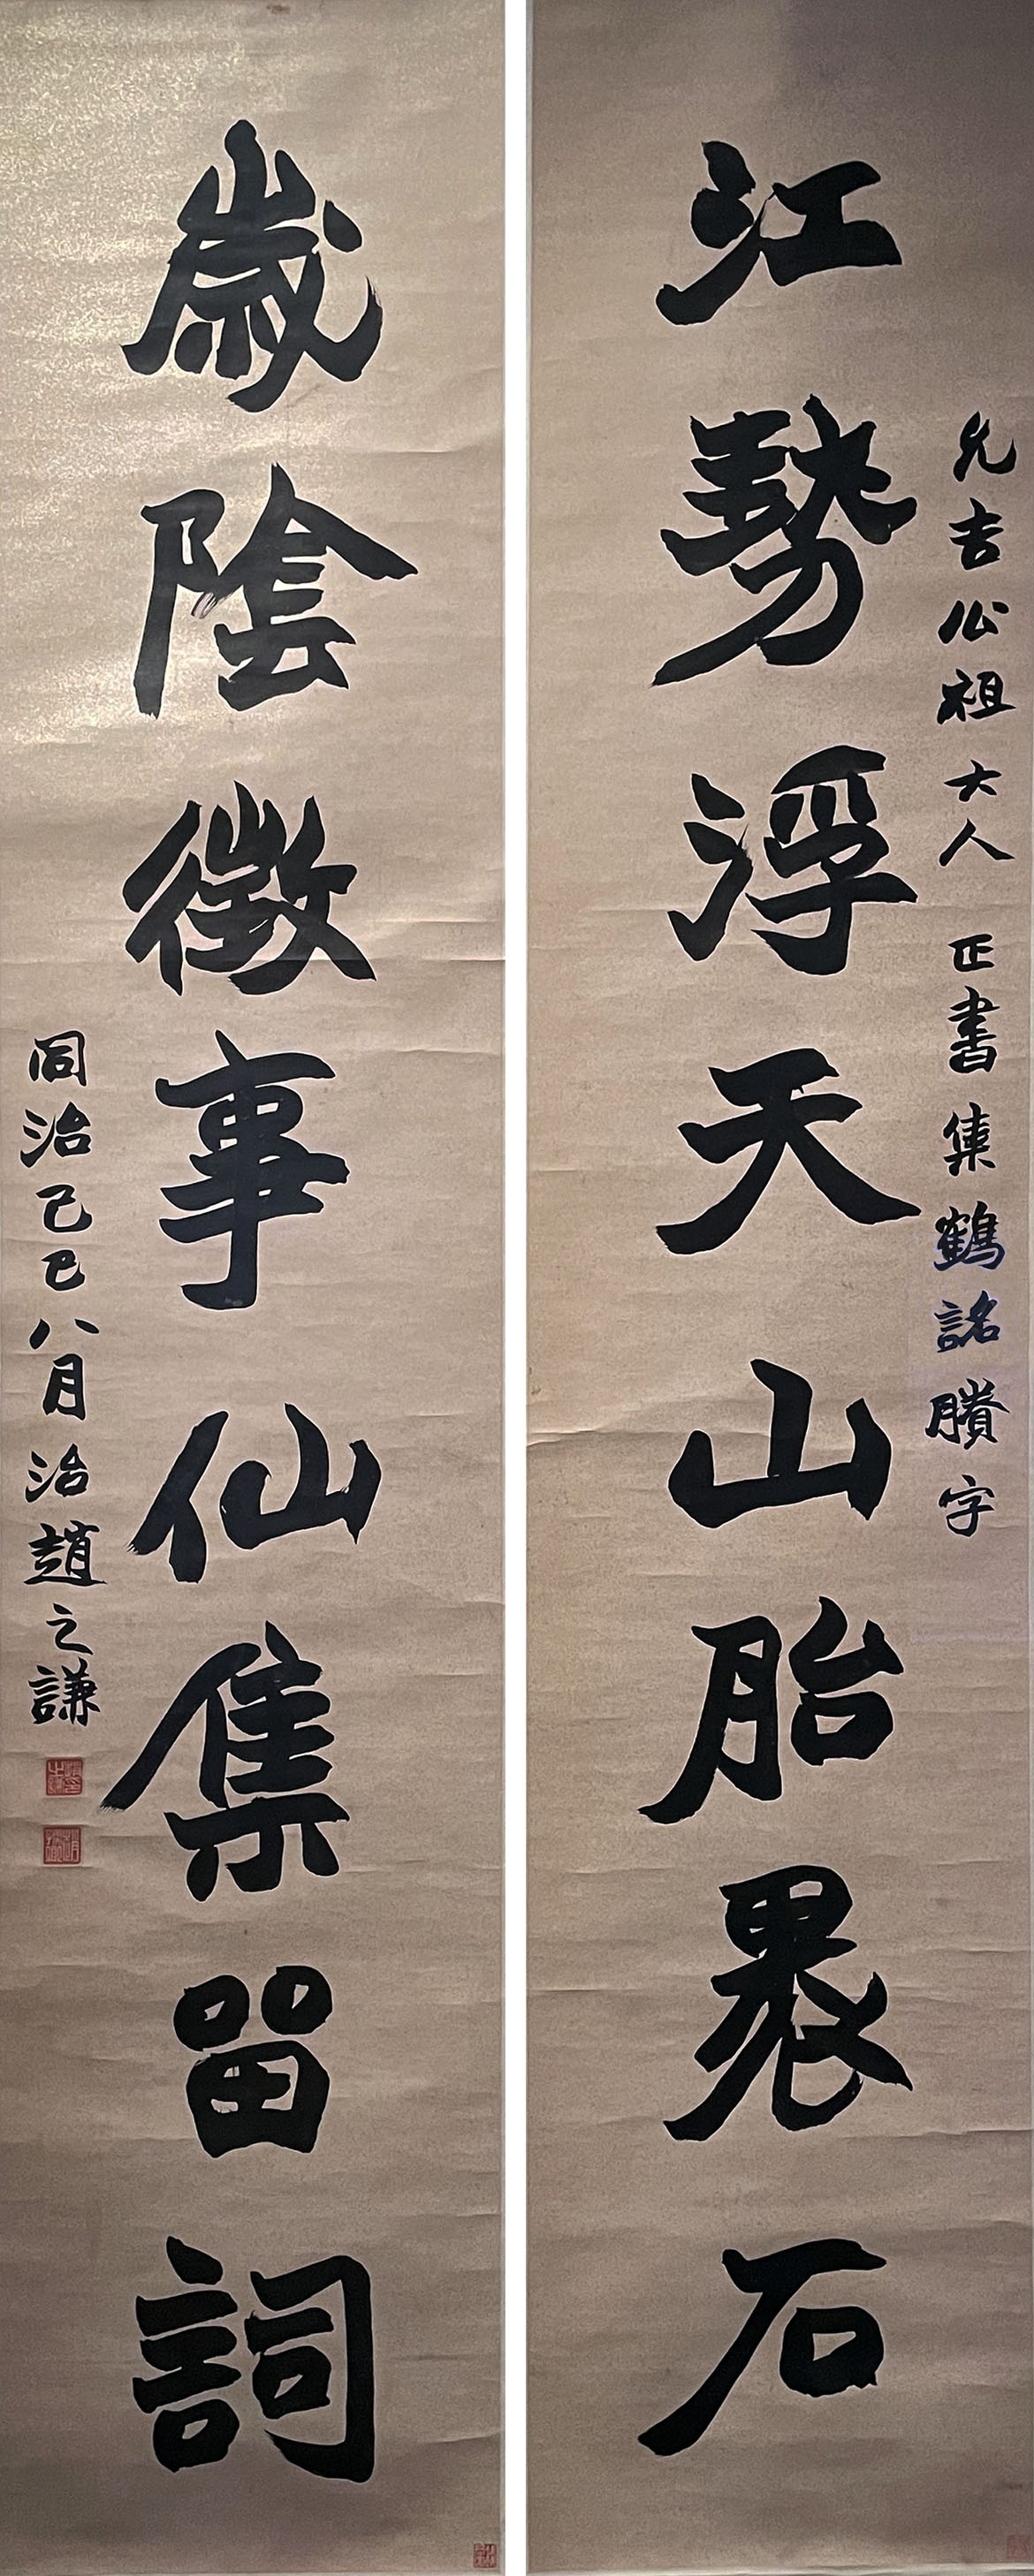 允吉公祖大人 正書集鶴詺賸字
江勢浮天山胎裹石
歲陰徵事仙集留詞
同治己巳八月治趙之謙